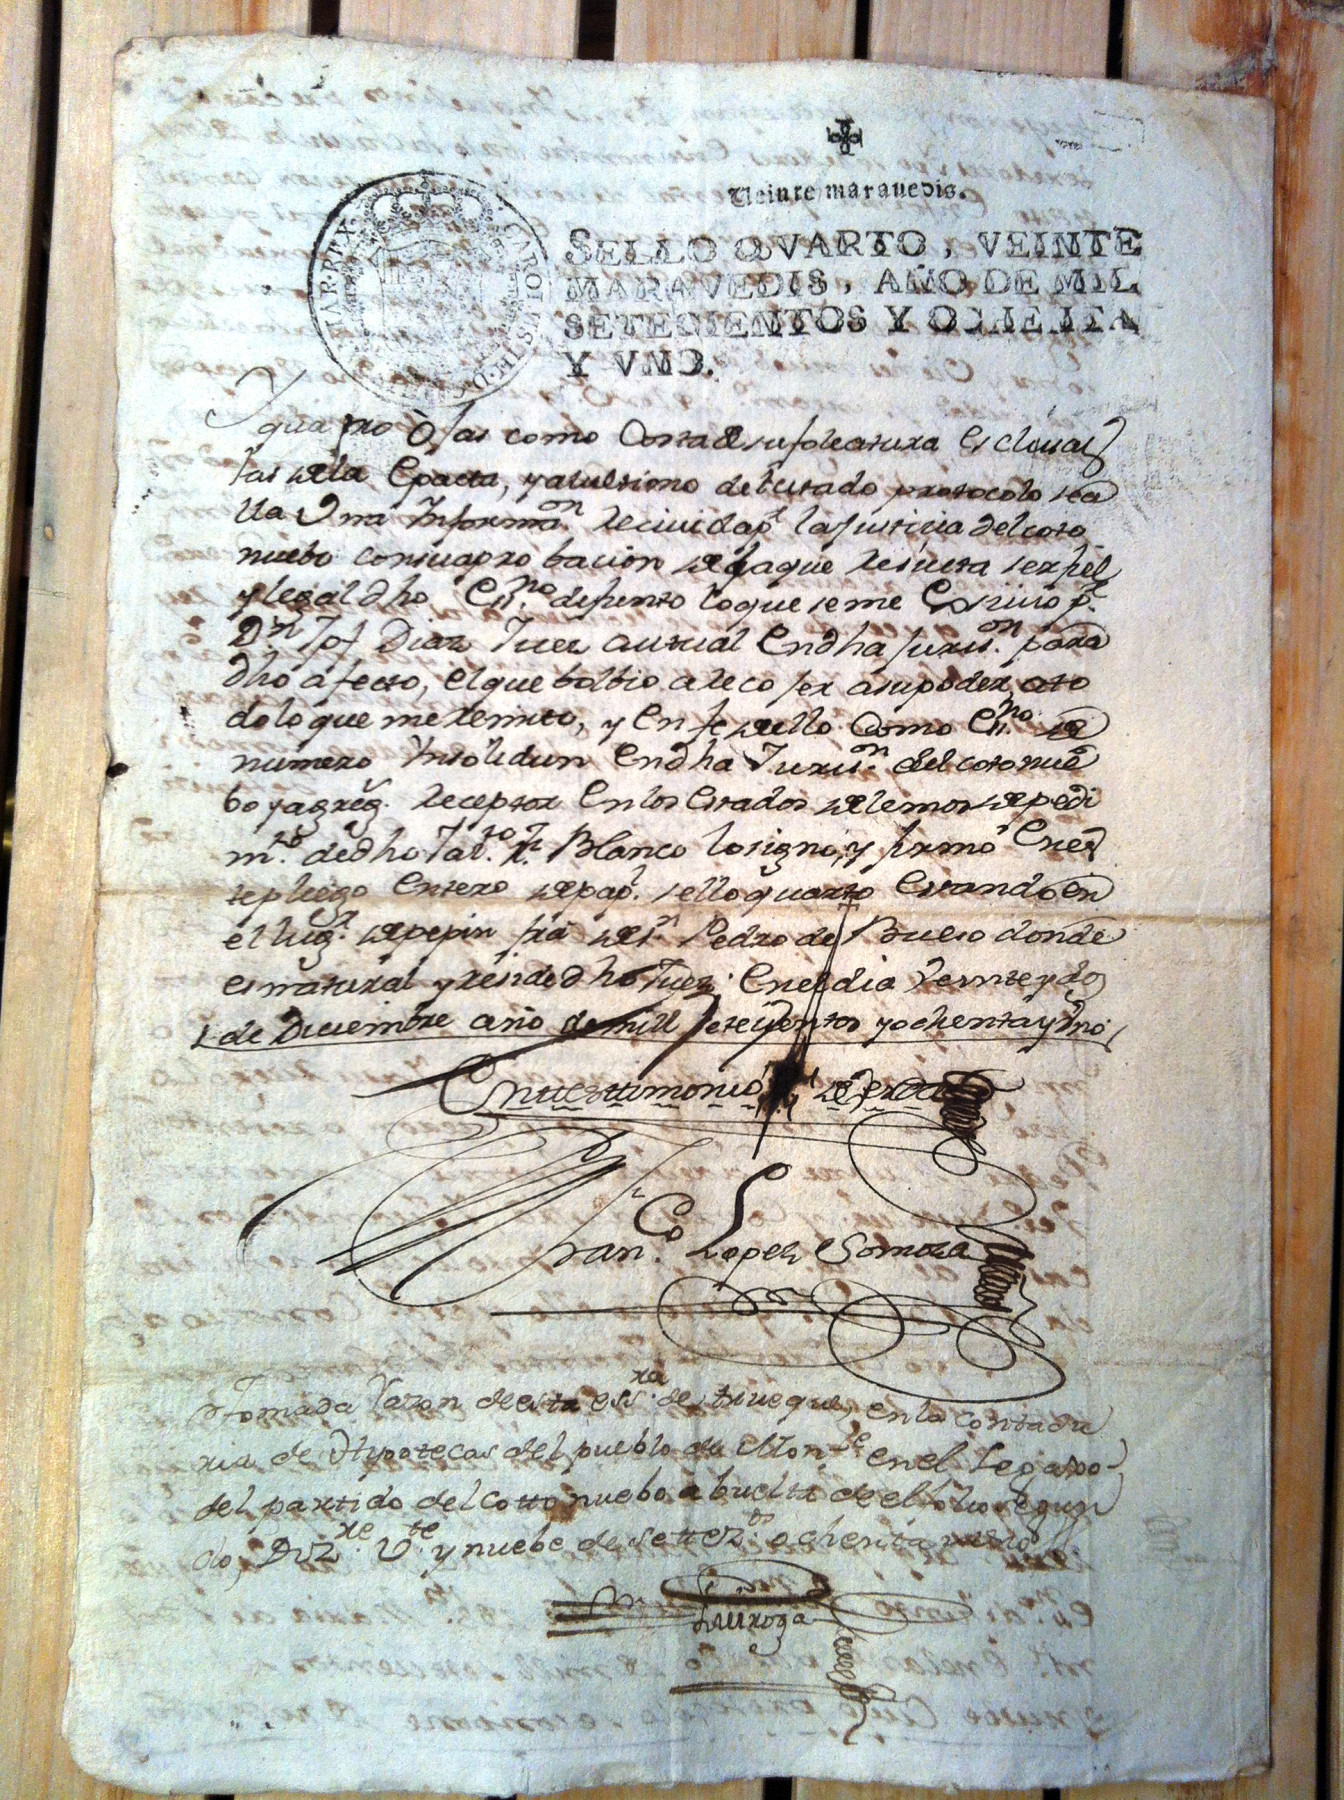 Veinte maravedis.
SELLO QVARTO, VEINTE
MARAVEDIS, AÑO DE MIL
SETECIENTOS Y OCHENTA
Y VNO.
CAROLUS III D.G. HISP
IAR REX
ygua pro ojas como Consta de su foleatura
tas dela Epacta, y al ultimo de Citado protocolo sea
lla Una Informaon recivida pr la Justicia del coto
nuebo con su aprobacion dela que Resulta ser fiel
y legal dho Essno defunto lo que se me Exsivio pr
Dn Jph Diaz Juez autual En dha Jurison para
dho afecto, el que bolbio a Recojer a su poder, a to
do lo que me Remito, y En fe dello Como Essno de
numero Ynsolidun En dha Jurison del coto nue
bo y agreg. Receptor En los Estados de lemos de pedi
mto de dho Blanco lo signo, y firmo En es
te pliego Entero de papl sello quarto Estando En
el lugr de pepin fra de Sn Pedro de Bueso donde
es natural y Reside dho Juez En el dia Veinte y dos
de Diciembre año de mill setecientos y ochenta y Uno
En testimonio de verdad
Franco Lopez Somoza
Tomada Razon de esta essra de trueque, en la Contadu
ria de Hypotecas del pueblo de Monfte en el Legaxo
del partido del Cotto nuebo a buelta de el folio segun
do, Dizre Vte y nuebe de settezos ochenta y uno
Quiroga